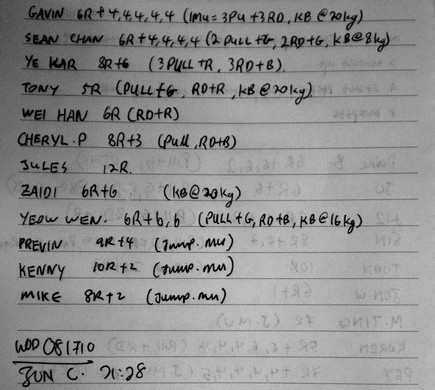 GAVIN 6R+4,4,4,4,4 (1MU = 3PU + 3RD, KB @ 20kg)
SEAN CHAN 6R+4,4,4,4 (2 PULL+G, 2RD+G, KB@8kg)
YE KAR 8R+6 (3PULL+R, 3RD+B).
TONY 5R (PULL+G, RD+R, KB@20kg).
WEI HAN 6R (RD+R)
CHERYL.P 8R+3 (PULL, RD+B)
JULES 12R.
ZAIDI 6R+6 (KB@20kg)
YEOW WEN. 6R+6,6 (PULL+G, RD+B, KB@16kg)
PREVIN 9R+4 (Jump. mu)
KENNY 10R+2 (Jump. mu)
MIKE 8R+2 (Jump. mu)
WOD 081710
JUN C. 21:28